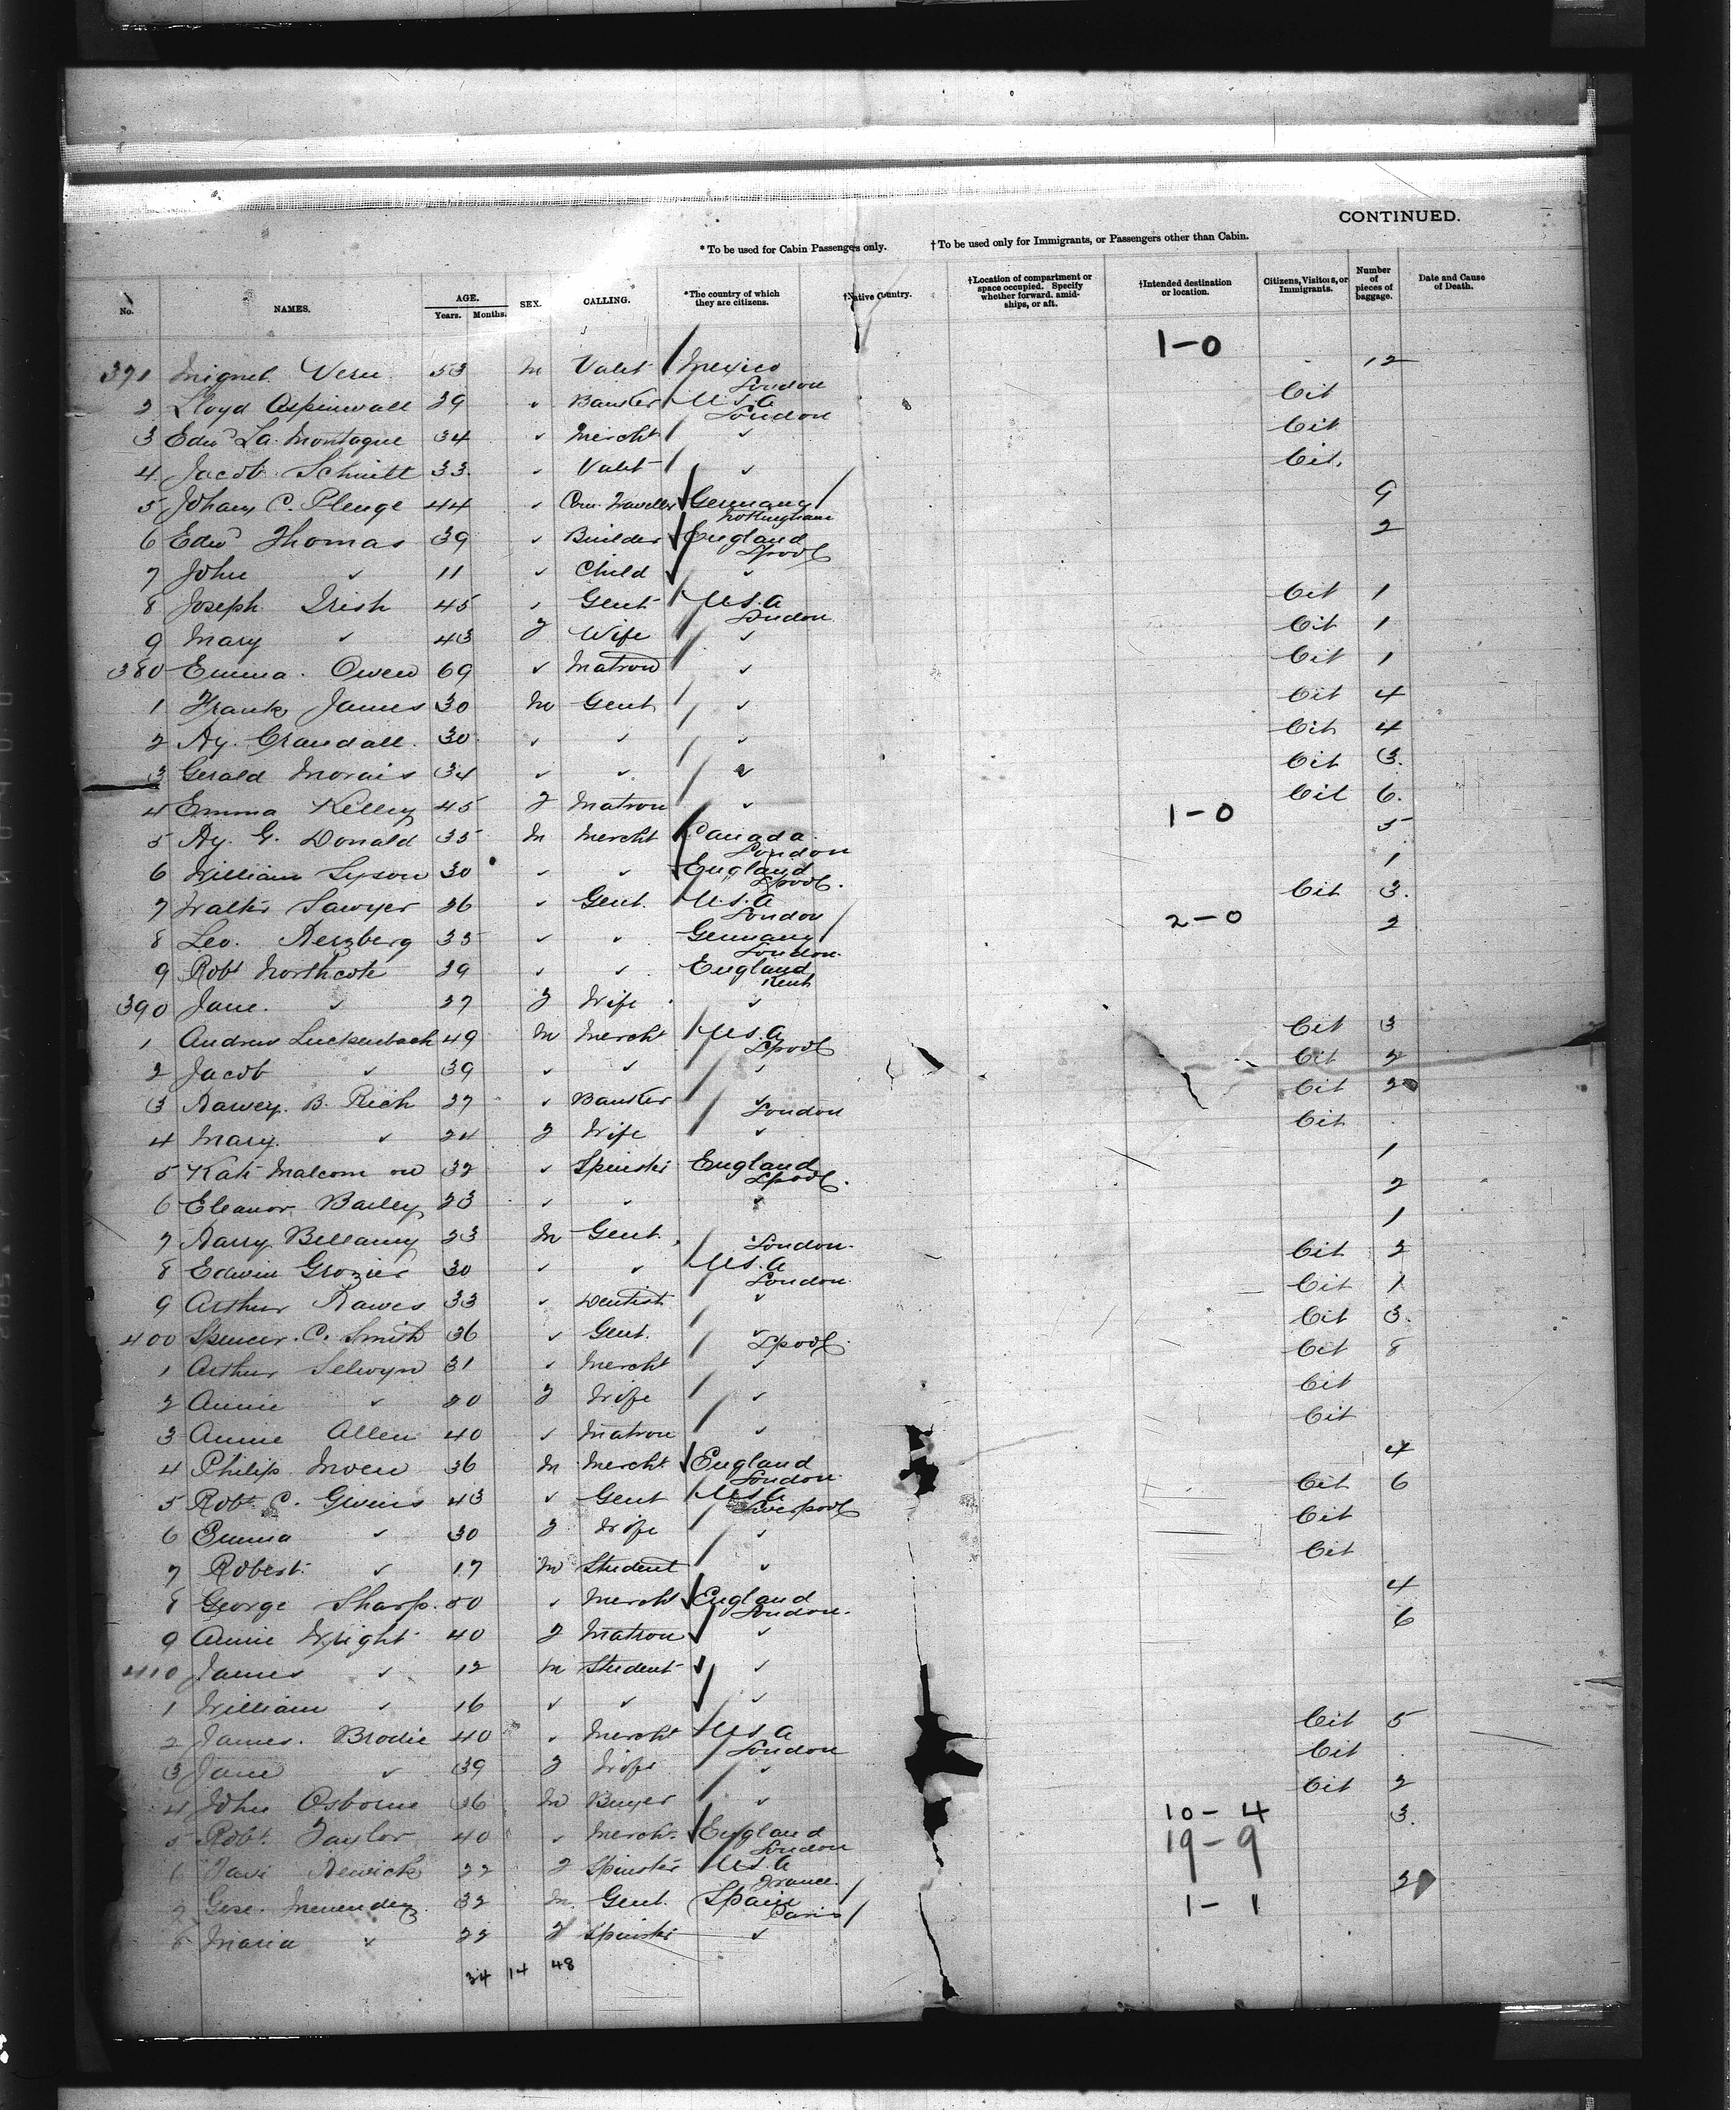 CONTINUED.
* To be used for Cabin Passengers only. † To be used only for Immigrants, or Passengers other than Cabin.
No. NAMES. AGE. Years. Months. SEX. CALLING. *The country of which they are citizens. †Native Country. †Location of compartment or space occupied. Specify whether forward, amidships, or aft. †Intended destination or location. Citizens, Visitors, or Immigrants. Number of pieces of baggage. Date and Cause of Death.
1-0
371 Miguel 53 M Valet Mexico London 12
2 Lloyd Aspinwall 29 " Banker U.S.A London Cit
3 Edwd La Montague 34 " Mercht " Cit
4 Jacob Schmitt 33 " Valet " Cit.
5 Johann C. Plenge 44 " Com. Traveller Germany Nottingham 9
6 Edwd Thomas 39 " Builder England Lpool 2
7 John " 11 " Child "
8 Joseph Irish 45 " Gent U.S.A London Cit 1
9 Mary " 43 F Wife " Cit 1
380 Emma Owen 69 " Matron " Cit 1
1 Frank James 30 M Gent " Cit 4
2 Hy. Crandall. 30 " " " Cit 4
3 Gerald Morais 34 " " " Cit 3.
4 Emma Kelley 45 F Matron " Cit 6.
1-0
5 Hy. G. Donald 35 M Mercht Canada London 5
6 William Tyson 30 " " England Lpool. 1
7 Walter Sawyer 26 " Gent. U.S.A London Cit 3.
2-0
8 Leo. Herzberg 35 " " Germany London 2
9 Robt Northcote 29 " " England Kent
390 Jane. " 27 F Wife "
1 Andrew Luckenbach 49 M Mercht U.S.A Lpool Cit 3
2 Jacob " 39 " " " Cit 2
3 Harvey. B. Rich 27 " Banker " London Cit 2
4 Mary. " 24 F Wife " Cit
5 Kate 32 " Spinster England Lpool. 1
6 Eleanor Bailey 23 " " " 2
7 Harry Bellamy 23 M Gent. " London 1
8 Edwin Grozier 30 " " U.S.A London Cit 2
9 Arthur Hawes 33 " Dentist " Cit 1
400 Spencer. C. Smith 36 " Gent. " Lpool Cit 3.
1 Arthur Selwyn 31 " Mercht " Cit 8
2 Annie " 20 F Wife " Cit
3 Annie Allen 40 " Matron " Cit
4 Philip 36 M Mercht England London 4
5 Robt. C. Givins 43 " Gent U.S.A Liverpool Cit 6
6 Emma " 30 F Wife " Cit
7 Robert " 17 M Student " Cit
8 George Sharp. 50 " Mercht England London 4
9 Annie Wright 40 F Matron " 6
410 James " 12 M Student "
1 William " 16 " " "
2 James. Brodie 40 " Mercht U.S.A London Cit 5
3 Jane " 39 F Wife " Cit
4 John Osborne 36 M Buyer " Cit 2
10-4
5 Robt. Taylor 40 " Mercht. England London 3.
19-9
6 22 F Spinster U.S.A France
7 Menendez 32 M Gent. Spain Paris 2
1-1
8 Maria " 22 F Spinster "
34 14 48